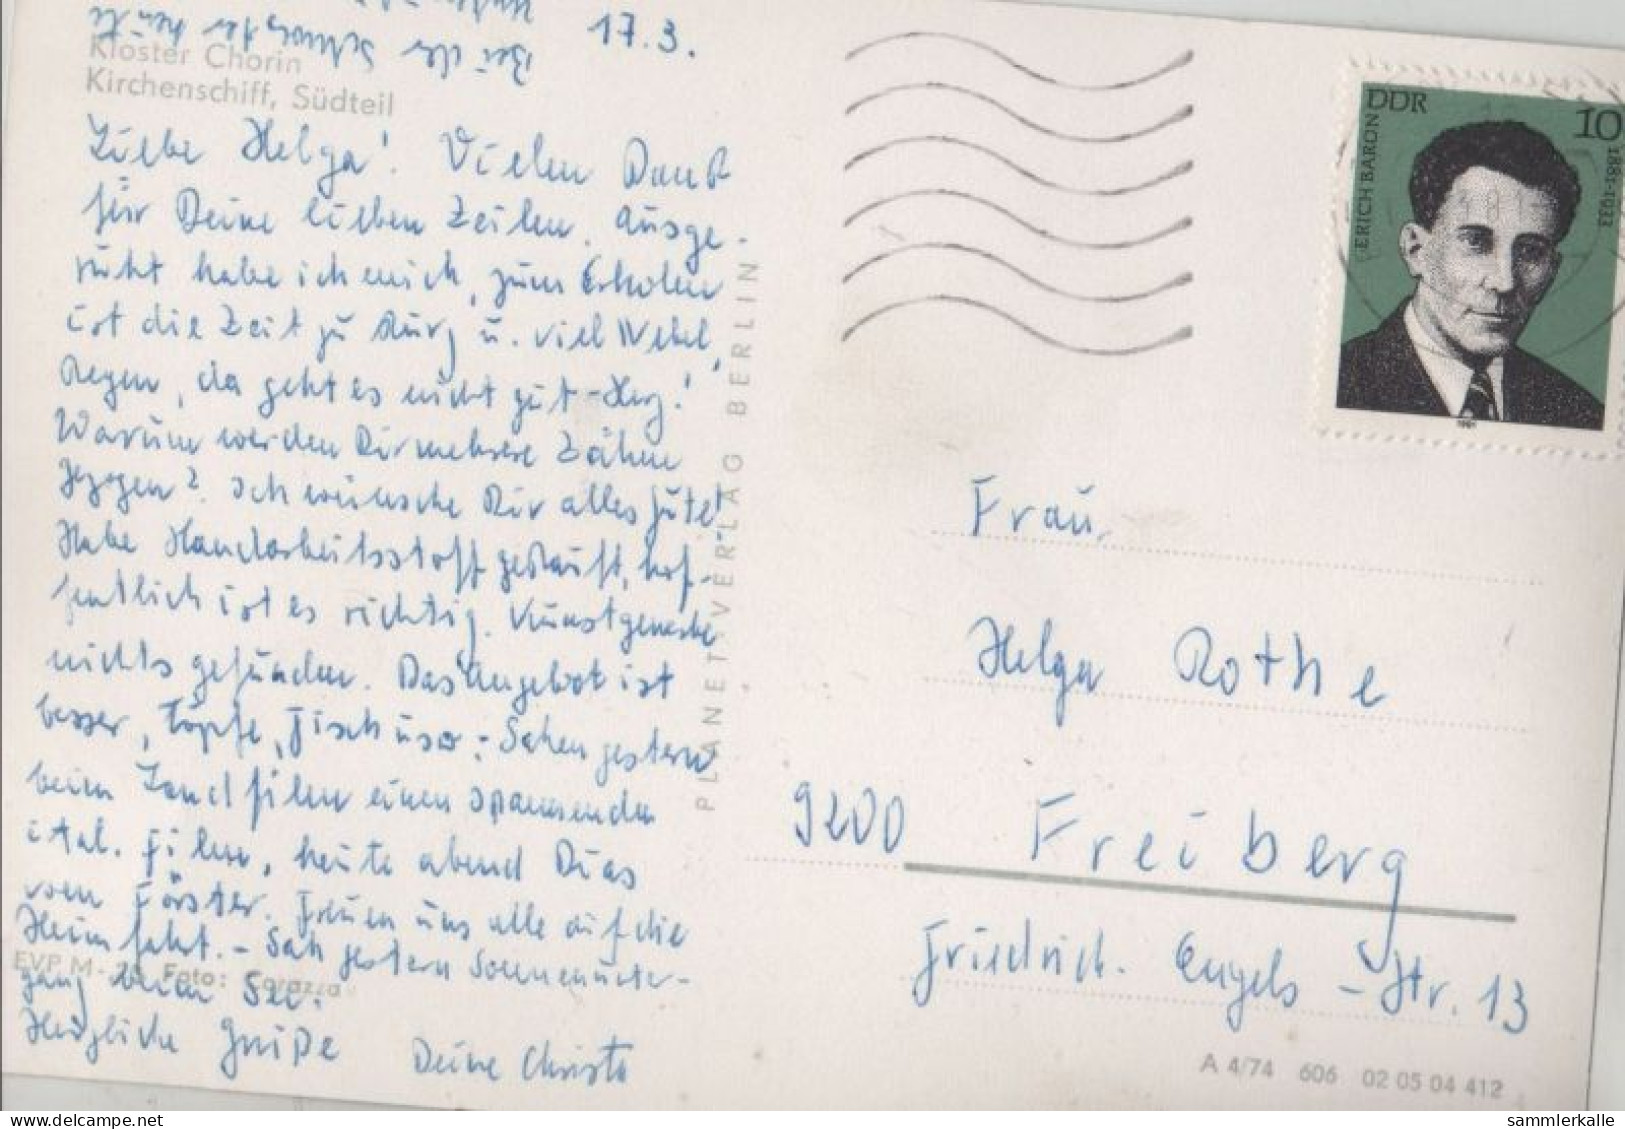 17.3.
Bei der Schwester heute
Kloster Chorin
Kirchenschiff, Südteil
Liebe Helga! Vielen Dank
für Deine lieben Zeilen. Ausge-
ruht habe ich mich, zum Erholen
ist die Zeit zu kurz u. viel Nebel,
Regen, da geht es nicht gut - Herz!
Warum werden Dir mehrere Zähne
gezogen? Ich wünsche Dir alles Gute!
Habe Handarbeitsstoff gekauft, hof-
fentlich ist es richtig. Kunstgewerbe
nichts gefunden. Das Angebot ist
besser, Töpfe, Tisch usw. - Sahen gestern
beim Landfilm einen spannenden
ital. Film, heute abend Dias
vom Förster. Freuen uns alle auf die
Heimfahrt. - Sah gestern Sonnenunter-
gang beim See.
Herzliche Grüße Deine Christa
EVP M -,20 Foto: Corazza
PLANET-VERLAG BERLIN
DDR
10
ERICH BARON
1881-1933
1981
Frau
Helga Rothe
9200 Freiberg
Friedrich-Engels-Str. 13
A 4/74 606 02 05 04 412
sammlerkalle